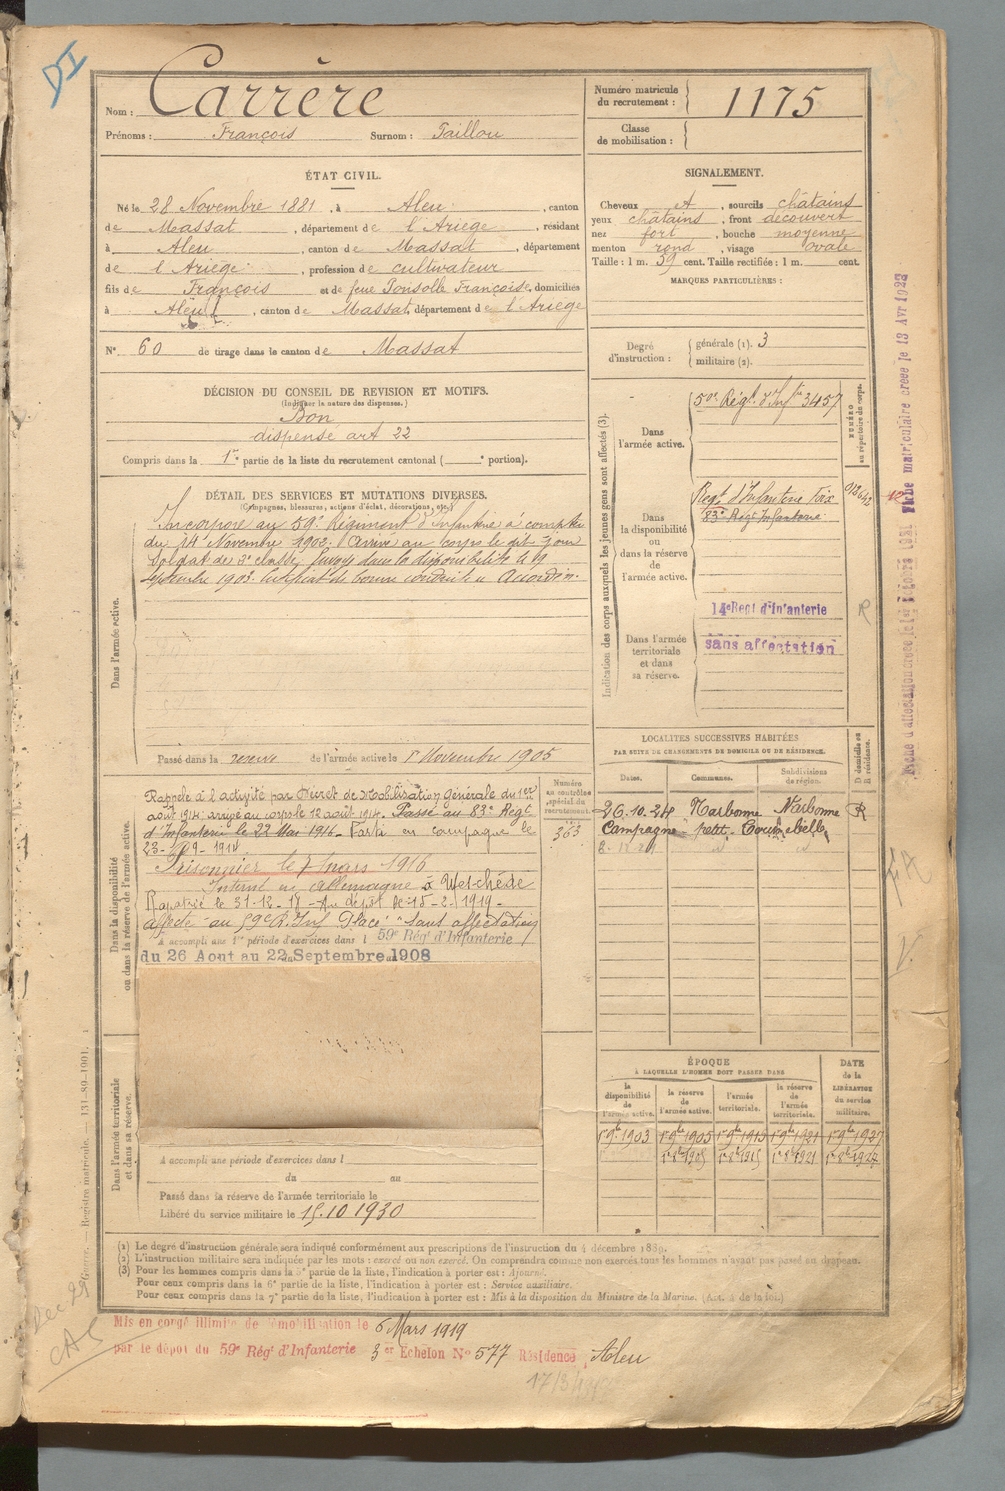 DI
Nom : Carrère
Prénoms : François Surnom : Paillou
Numéro matricule du recrutement : 1175
Classe de mobilisation :
ÉTAT CIVIL.
Né le 28 Novembre 1881, à Aleu, canton
de Massat, département de l'Ariège, résidant
à Aleu, canton de Massat, département
de l'Ariège, profession de cultivateur
fils de François et de feue Ponsolle Françoise, domiciliés
à Aleu, canton de Massat, département de l'Ariège
N° 60 de tirage dans le canton de Massat
SIGNALEMENT.
Cheveux , sourcils châtains
yeux châtains, front découvert
nez fort, bouche moyenne
menton rond, visage ovale
Taille : 1 m. 59 cent. Taille rectifiée : 1 m. cent.
MARQUES PARTICULIÈRES :
Degré d'instruction : générale (1). 3
militaire (2).
DÉCISION DU CONSEIL DE REVISION ET MOTIFS.
(Indiquer la nature des dispenses.)
Bon
dispense art 22
Compris dans la 1re partie de la liste du recrutement cantonal ( e portion).
DÉTAIL DES SERVICES ET MUTATIONS DIVERSES.
(Campagnes, blessures, actions d'éclat, décorations, etc.)
Dans l'armée active.
Incorporé au 59e Régiment d'infanterie à compter
du 14 Novembre 1902. Arrivé au corps le dit jour
Soldat de 2e classe. Envoyé dans la disponibilité le 19
septembre 1903. Certificat de bonne conduite Accordé.
Passé dans la réserve de l'armée active le 1er Novembre 1905
Indication des corps auxquels les jeunes gens sont affectés (3).
NUMÉRO au répertoire du corps.
Dans l'armée active.
59e Régt d'Infie 3457
Dans la disponibilité ou dans la réserve de l'armée active.
Régt d'Infanterie Foix
83e Régt Infanterie
Dans l'armée territoriale et dans sa réserve.
14e Regt d'Infanterie
sans affectation
R
Dans la disponibilité ou dans la réserve de l'armée active.
Rappelé à l'activité par Décret de Mobilisation générale du 1er
août 1914; arrivé au corps le 12 août 1914. Passé au 83e Régt
d'Infanterie le 22 Mai 1916. Parti en campagne le
Prisonnier le 7 mars 1916
Interné en Allemagne à
Rapatrié le 31-12-18 - Au dépôt le 15-2-1919 -
affecté au 59e R. Inf Placé "Sans affectation
A accompli une 1re période d'exercices dans l 59e Régt d'Infanterie
du 26 Aout au 22 Septembre 1908
Numéro au contrôle spécial du recrutement.
363
LOCALITES SUCCESSIVES HABITÉES
PAR SUITE DE CHANGEMENTS DE DOMICILE OU DE RÉSIDENCE.
Dates. Communes. Subdivisions de région. D domicile ou R résidence.
26.10.24 Narbonne Narbonne R
Campagne petit
ÉPOQUE
À LAQUELLE L'HOMME DOIT PASSER DANS
DATE de la LIBÉRATION du service militaire.
la disponibilité de l'armée active. la réserve de l'armée active. l'armée territoriale. la réserve de l'armée territoriale.
1er 9bre 1903 1er 9bre 1905 1er 9bre 1915 1er 9bre 1921 1er 9bre 1927
Dans l'armée territoriale et dans sa réserve.
A accompli une période d'exercices dans l
du au
Passé dans la réserve de l'armée territoriale le
Libéré du service militaire le 15.10 1930
(1) Le degré d'instruction générale sera indiqué conformément aux prescriptions de l'instruction du 4 décembre 1889.
(2) L'instruction militaire sera indiquée par les mots : exercé ou non exercé. On comprendra comme non exercés tous les hommes n'ayant pas passé au drapeau.
(3) Pour les hommes compris dans la 5e partie de la liste, l'indication à porter est : Ajourné.
Pour ceux compris dans la 6e partie de la liste, l'indication à porter est : Service auxiliaire.
Pour ceux compris dans la 7e partie de la liste, l'indication à porter est : Mis à la disposition du Ministre de la Marine. (Art. 4 de la loi.)
Mis en congé illimité de démobilisation le 6 Mars 1919
par le dépôt du 59e Régt d'Infanterie 3er Echelon N° 577 Résidence, Aleu
Registre matricule. 131-89-1901.